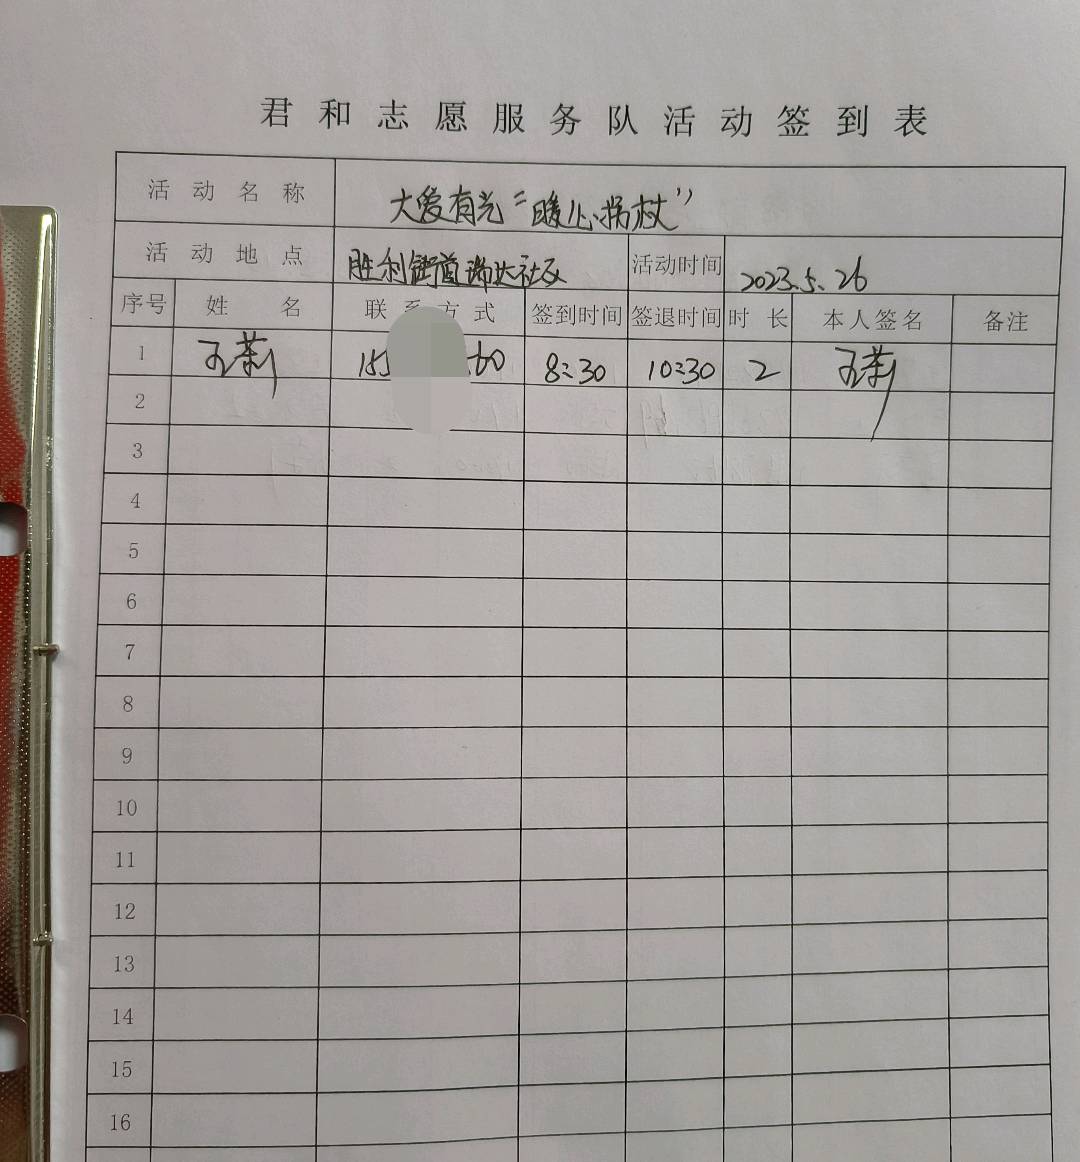 君和志愿服务队活动签到表
活动名称 大爱有光“暖心拐杖”
活动地点 胜利街道瑞达社区 活动时间 2023.5.26
序号 姓名 联系方式 签到时间 签退时间 时长 本人签名 备注
1 155 60 8:30 10:30 2
2
3
4
5
6
7
8
9
10
11
12
13
14
15
16